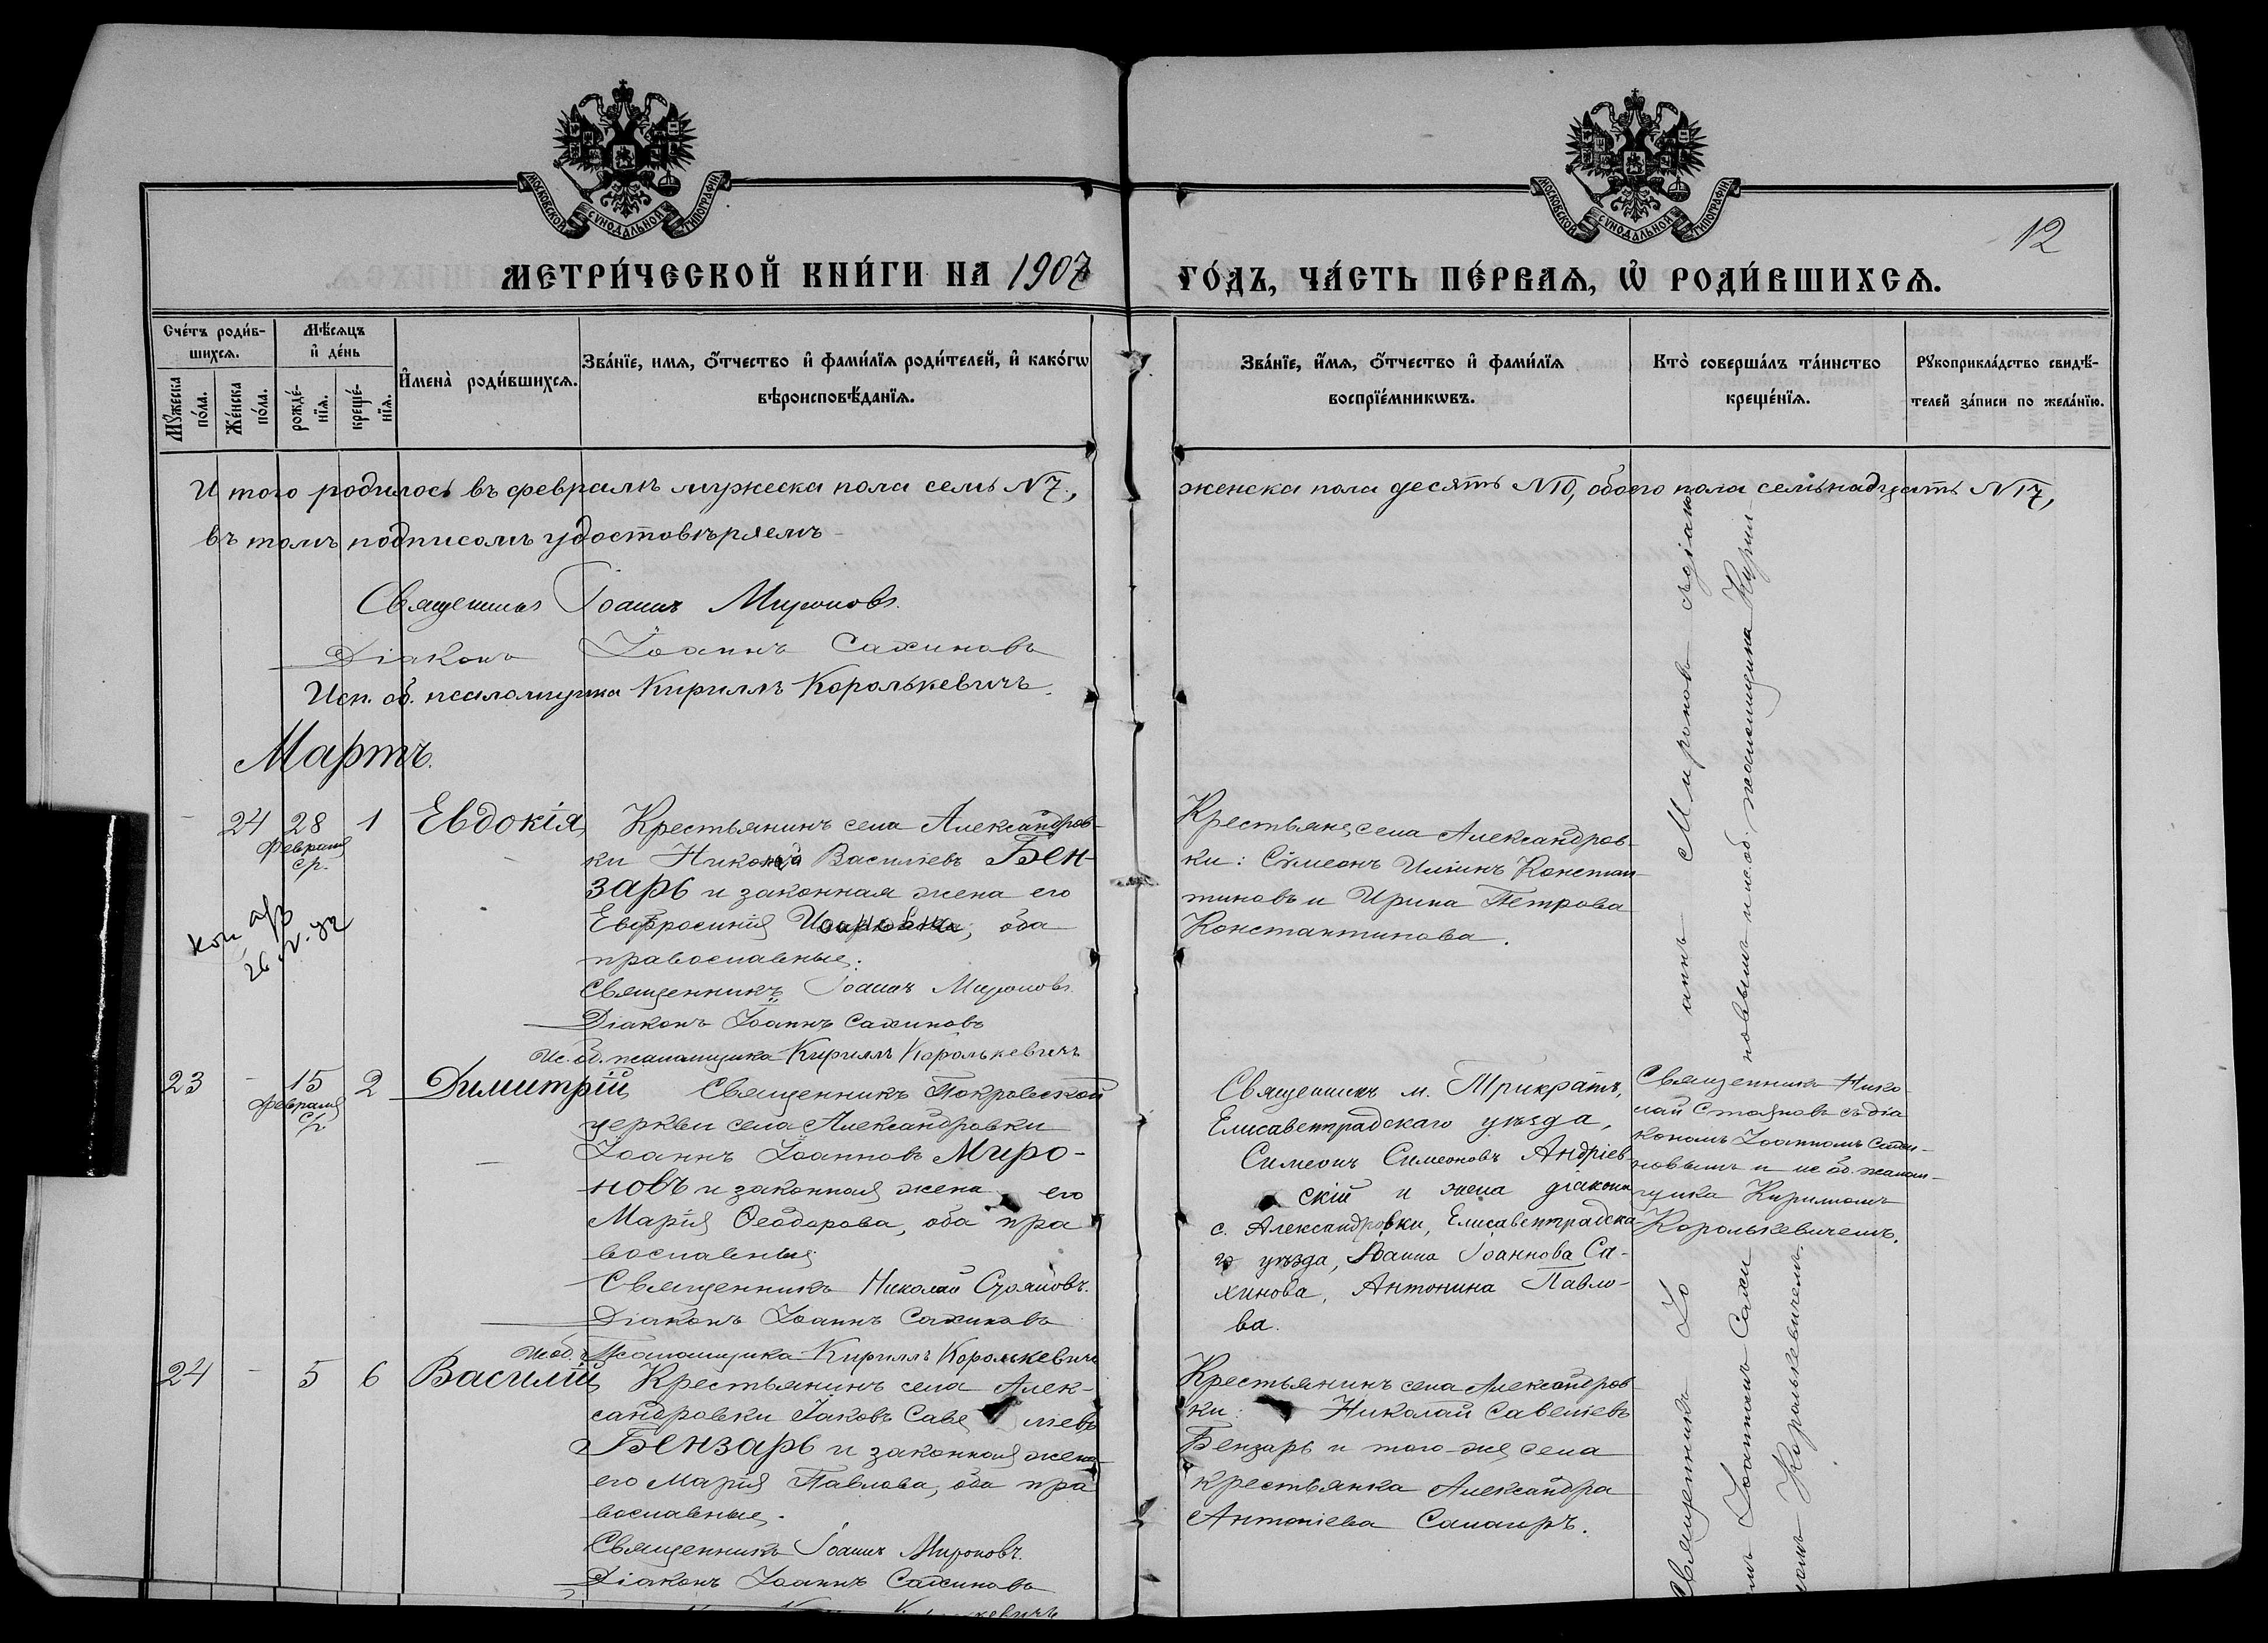 МОСКОВСКОЙ СУНОДАЛЬНОЙ ТИПОГРАФІИ
МОСКОВСКОЙ СУНОДАЛЬНОЙ ТИПОГРАФІИ
12
МЕТРИ́ЧЕСКОЙ КНИ́ГИ НА 1907 ГО́ДЪ, ЧА́СТЬ ПЕ́РВАѦ, Ѡ҆ РОДИ́ВШИХСѦ.
Сче́тъ роди́в-
шихсѧ.
Мꙋ́жеска
по́ла.
Же́нска
по́ла.
Мѣ́сѧцъ
и҆ де́нь
рожде́-
нїѧ.
креще́-
нїѧ.
И҆мена̀ роди́вшихсѧ.
Зва́нїе, имѧ, ѻ҆́тчество и҆ фами́лїѧ роди́телей, и҆ како́гѡ
вѣроисповѣ́данїѧ.
Зва́нїе, и҆́мѧ, ѻ҆́тчество и҆ фами́лїѧ
воспрїе́мникѡвъ.
Кто̀ соверша́лъ та́инство
креще́нїѧ.
Рꙋкоприкла́дство свидѣ́-
телей за́писи по жела́нїю.
Итого родилось въ февралѣ мужеска пола семь N 7, женска пола десять N 10, обоего пола семьнадцать N 17,
въ томъ подписомъ удостовѣряемъ
Священникъ Іоаннъ Мироновъ.
Діаконъ Іоаннъ Сахиновъ
Исп. об. псаломщика Кириллъ Королькевичъ.
Мартъ.
- 24 28 1 Евдокія
февраля
ср.
Крестьянинъ села Александров-
ки Никонъ Василіевъ Бен-
зарь и законная жена его
Евфросинія Иоановна, оба
православные.
Священникъ Іоаннъ Мироновъ.
Діаконъ Іоаннъ Сахиновъ
Ис. об. псаломщика Кириллъ Королькевичъ
Крестьяне села Александров-
ки: Сѵмеонъ Иліинъ Констан
тиновъ и Ирина Петрова
Константинова.
26
23 - 15 2 Димитрій
февраля
с/г.
Священникъ Покровской
церкви села Александровки
Іоаннъ Іоанновъ Миро-
новъ и законная жена его
Марія Ѳеодорова, оба пра
вославные
Священникъ Николай Стояновъ.
Діаконъ Іоаннъ Сахиновъ
Ис. об. Псаломщика Кириллъ Королькевичъ
Священникъ м. Трикратъ,
Елисаветградскаго уѣзда,
Симеонъ Симеоновъ Андріев-
скій и жена діакона
с. Александровки, Елисаветградска-
го уѣзда, Іоанна Іоаннова Са-
хинова, Антонина Павло-
ва.
Священникъ Нико
лай Стояновъ съ діа
кономъ Іоанномъ Сахи-
новымъ и ис. об. псалом-
щика Кирилломъ
Королькевичемъ.
24 - 5 6 Василій
Крестьянинъ села Алек-
сандровки Іаковъ Саве ліевъ
Бензарь и законная жена
его Марія Павлова, оба пра
вославные.
Священникъ Іоаннъ Мироновъ.
Діаконъ Іоаннъ Сахиновъ
Крестьянинъ села Александров
ки: Николай Савеліевъ
Бензарь и того-же села
крестьянка Александра
Антоніева Саламоръ.
Священникъ Іо аннъ Мироновъ съ діако
мъ Іоанномъ Сахи новымъ и ис. об. псаломщика Кирил-
ломъ Королькевичемъ.